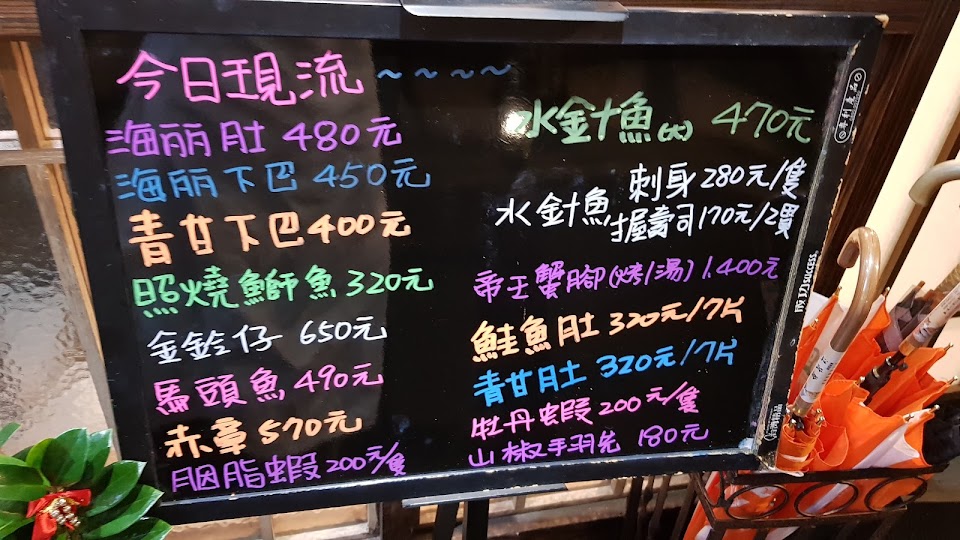 今日現流~~~~
海丽肚 480元
海丽下巴 450元
青甘下巴400元
照燒鰤魚 320元
金鈴仔 650元
馬頭魚 490元
赤章 570元
胭脂蝦 200元/隻
水金十魚(大) 470元
水針魚 刺身 280元/隻
握壽司 170元/2貫
帝王蟹腳(烤/湯) 1.400元
鮭魚肚 320元/7片
青甘肚 320元/7片
牡丹蝦 200元/隻
山椒手羽先 180元
專利產品
成功 SUCCESS.
台灣精品